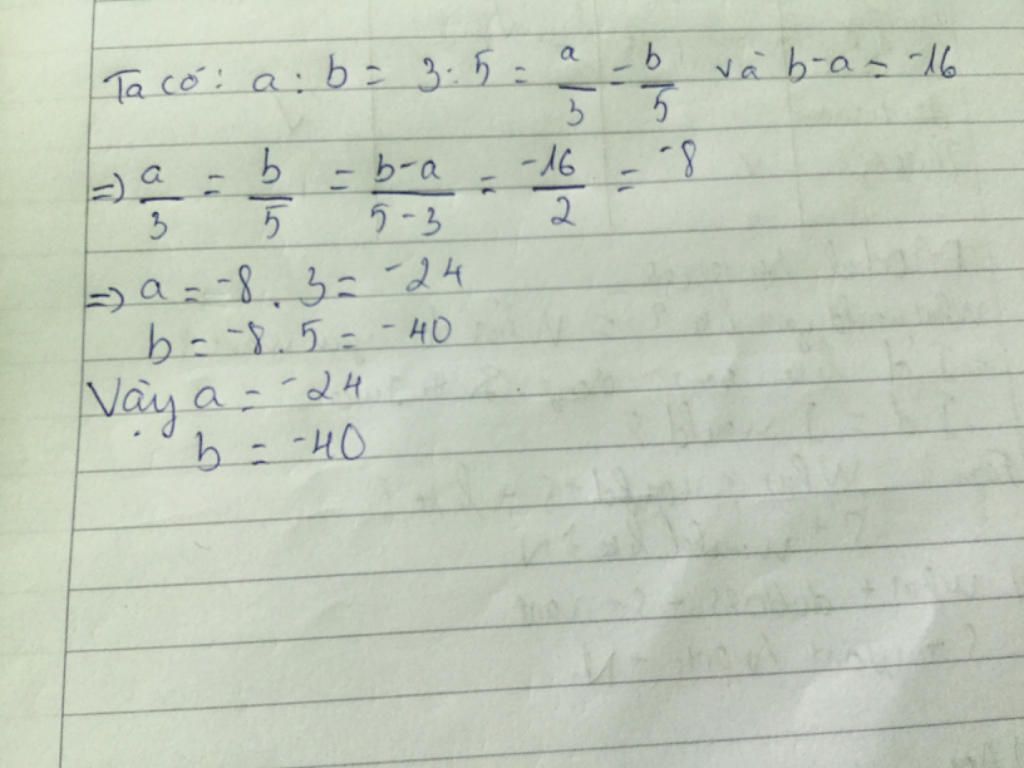 Ta có: a : b = 3 : 5 = a/3 = b/5 và b-a = -16
=> a/3 = b/5 = b-a/5-3 = -16/2 = -8
=> a = -8 . 3 = -24
b = -8 . 5 = -40
Vậy a = -24
b = -40